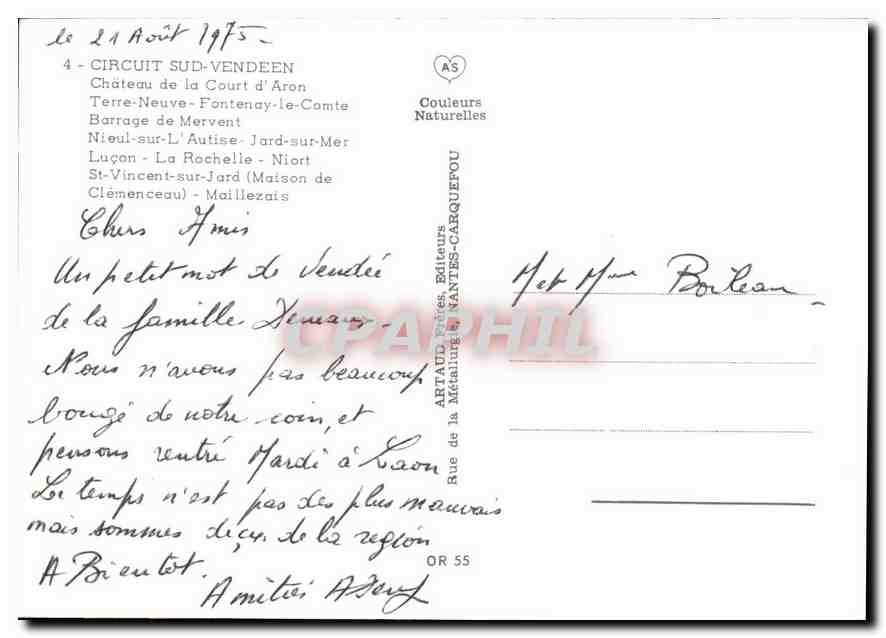 le 21 Août 1975-
4 - CIRCUIT SUD-VENDEEN
Château de la Court d'Aron
Terre-Neuve - Fontenay-le-Comte
Barrage de Mervent
Nieul-sur-L'Autise - Jard-sur-Mer
Luçon - La Rochelle - Niort
St-Vincent-sur-Jard (Maison de
Clémenceau) - Maillezais
Chers Amis
Un petit mot de Vendée
de la famille
Nous n'avons pas beaucoup
bougé de notre coin, et
pensons rentré Mardi à Laon
Le temps n'est pas des plus mauvais
mais sommes déçus de la région
A Bientot.
Amitiés
AS
Couleurs
Naturelles
ARTAUD Frères, Editeurs
Rue de la Métallurgie, NANTES-CARQUEFOU
OR 55
M et Mme Boileau -
CPAPHIL